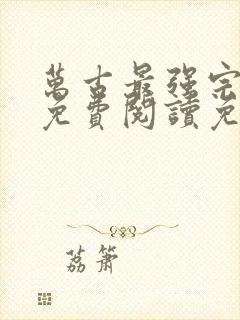 萬古最強宗
免費閱讀免
荔簫